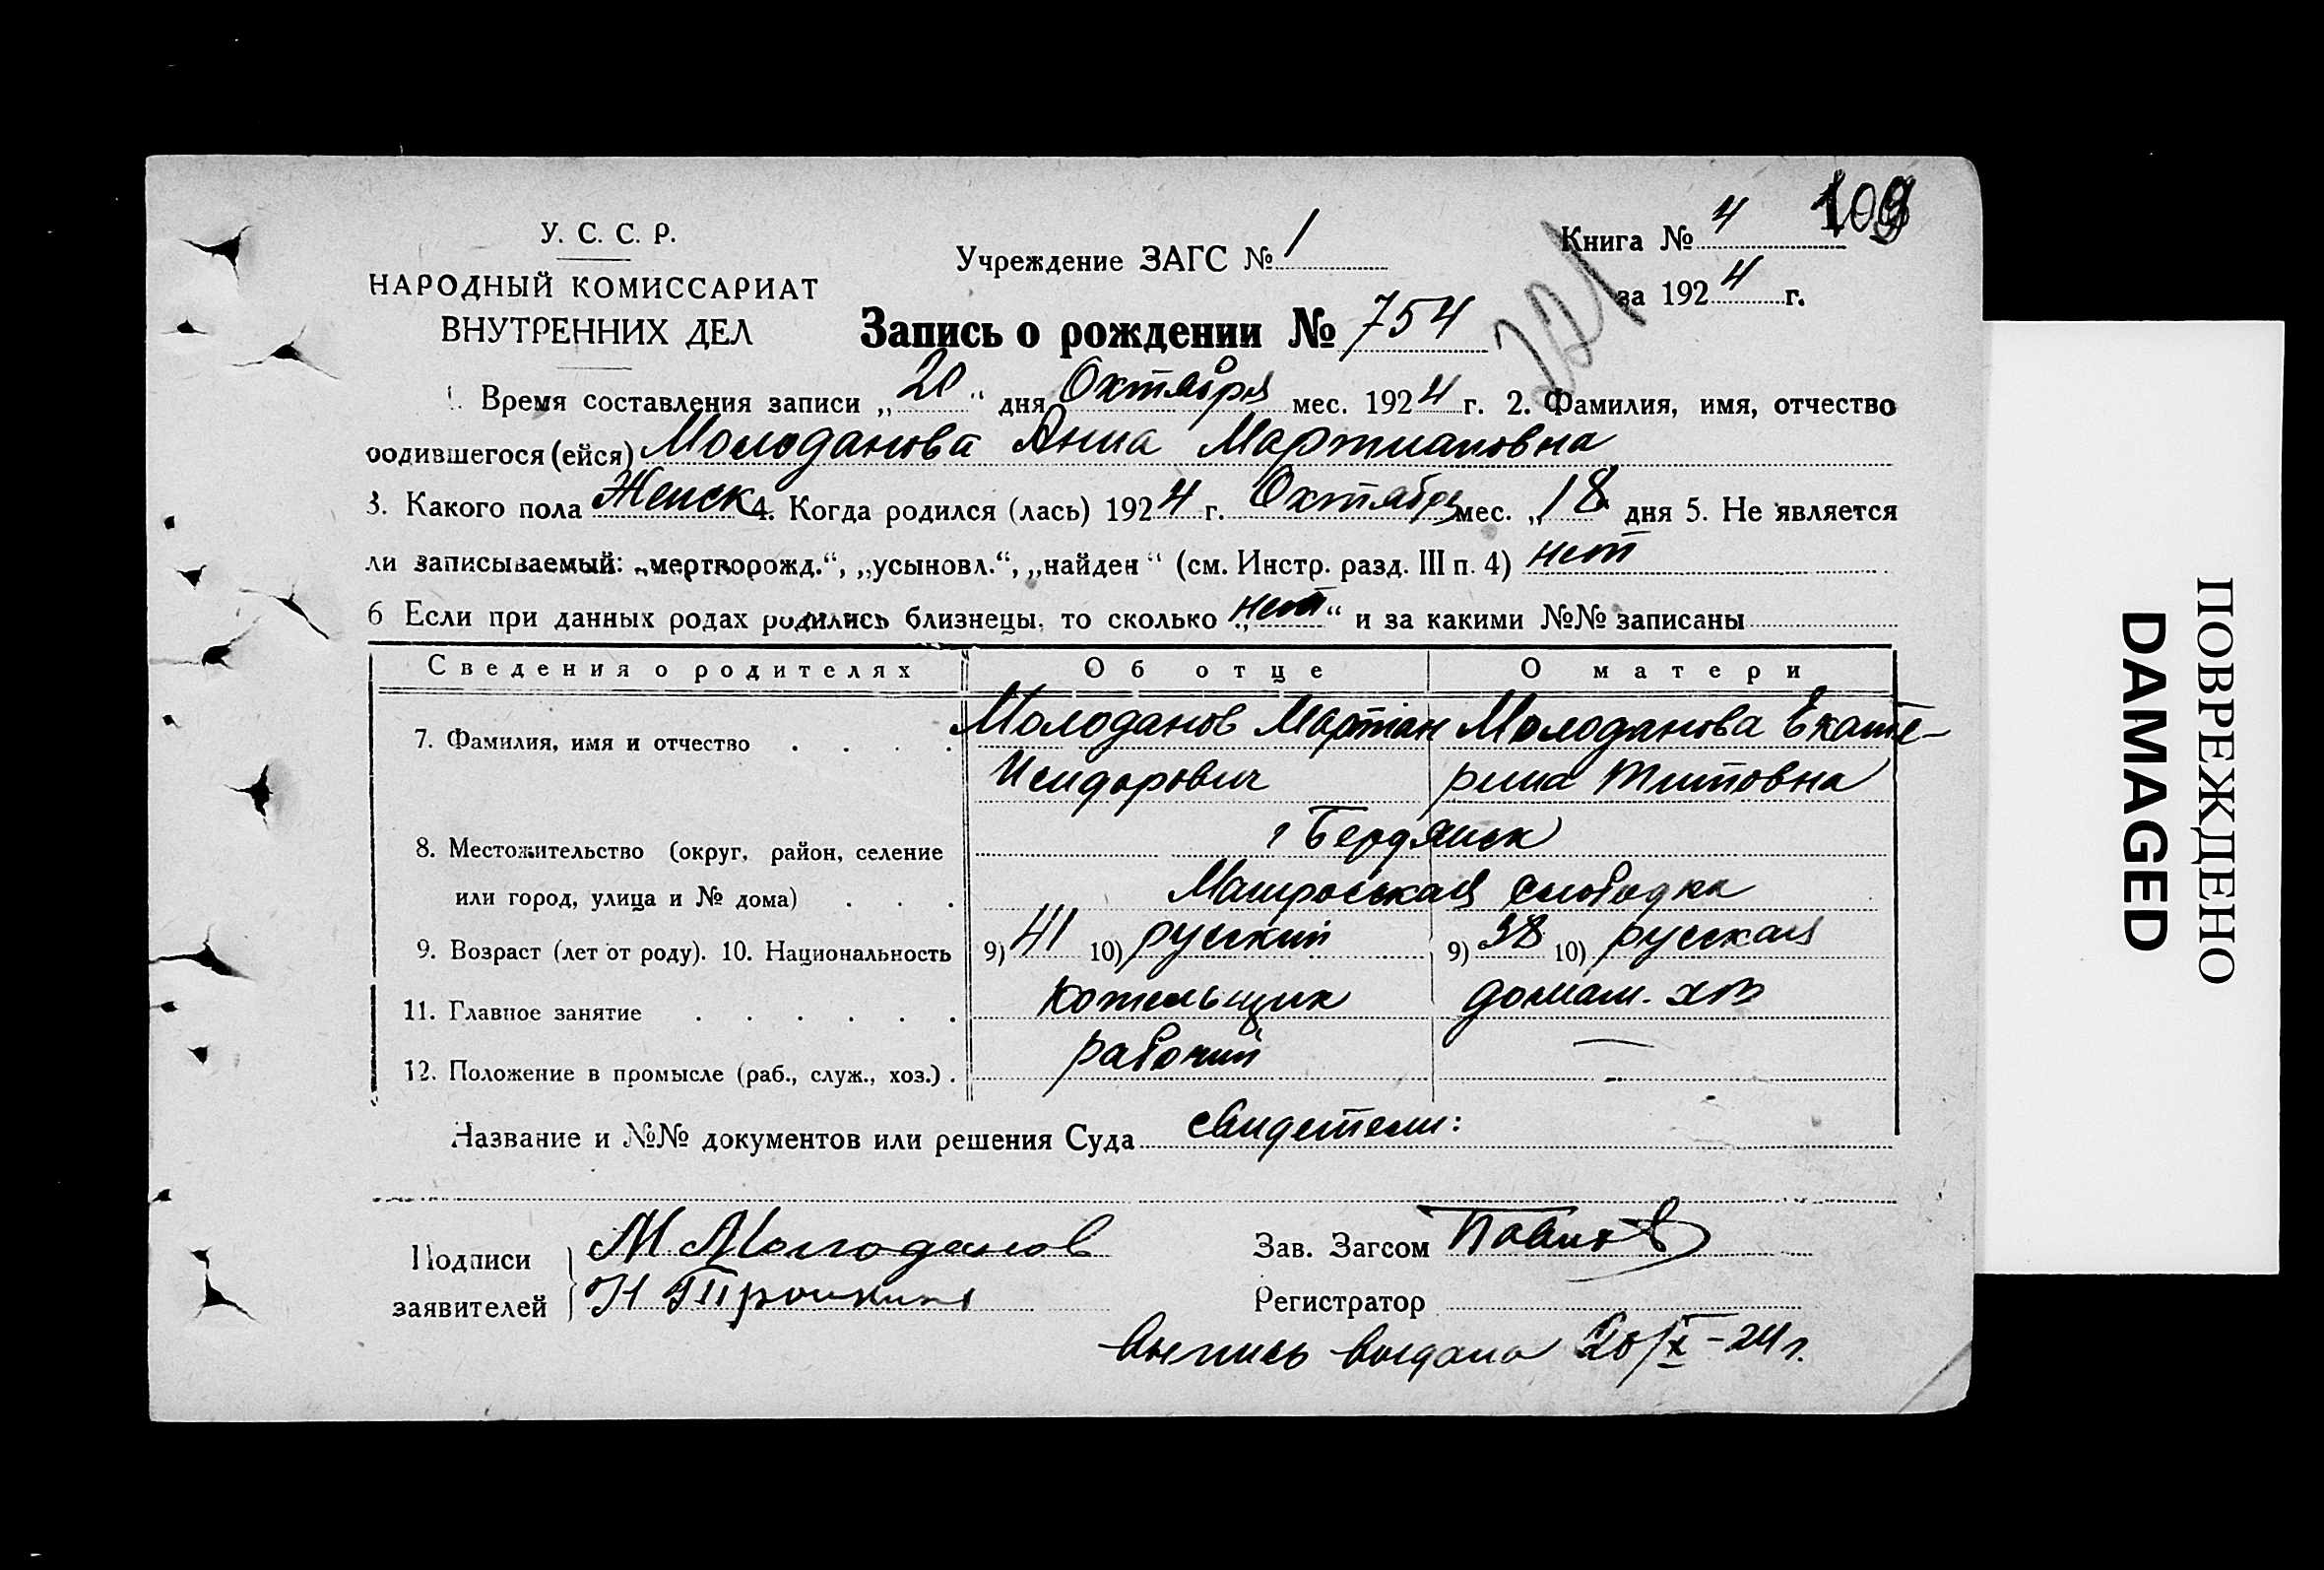 109
У. С. С. Р.
НАРОДНЫЙ КОМИССАРИАТ
ВНУТРЕННИХ ДЕЛ
Учреждение ЗАГС № 1
Книга № 4
за 1924 г.
Запись о рождении № 754
221
1. Время составления записи „20“ дня Октября мес. 1924 г. 2. Фамилия, имя, отчество
родившегося (ейся) Молоданова Анна Мартиановна
3. Какого пола Женск 4. Когда родился (лась) 1924 г. Октября мес. „18 дня 5. Не является
ли записываемый: „мертворожд.“, „усыновл.“, „найден“ (см. Инстр. разд. III п. 4) нет
6 Если при данных родах родились близнецы, то сколько „нет“ и за какими №№ записаны
Сведения о родителях Об отце О матери
7. Фамилия, имя и отчество . . . . Молоданов Мартiан Молоданова Екате-
Исидорович рина Титовна
8. Местожительство (округ, район, селение г Бердянск
или город, улица и № дома) . . . Матроськая слободка
9. Возраст (лет от роду). 10. Национальность 9) 41 10) русский 9) 38 10) русская
11. Главное занятие . . . . . . котельщик домаш. хоз
12. Положение в промысле (раб., служ., хоз.) . рабочий —
Название и №№ документов или решения Суда свидетели:
Подписи М Молоданов Зав. Загсом
заявителей Н Регистратор
выпись выдана 20/X-24 г.
ПОВРЕЖДЕНО
DAMAGED